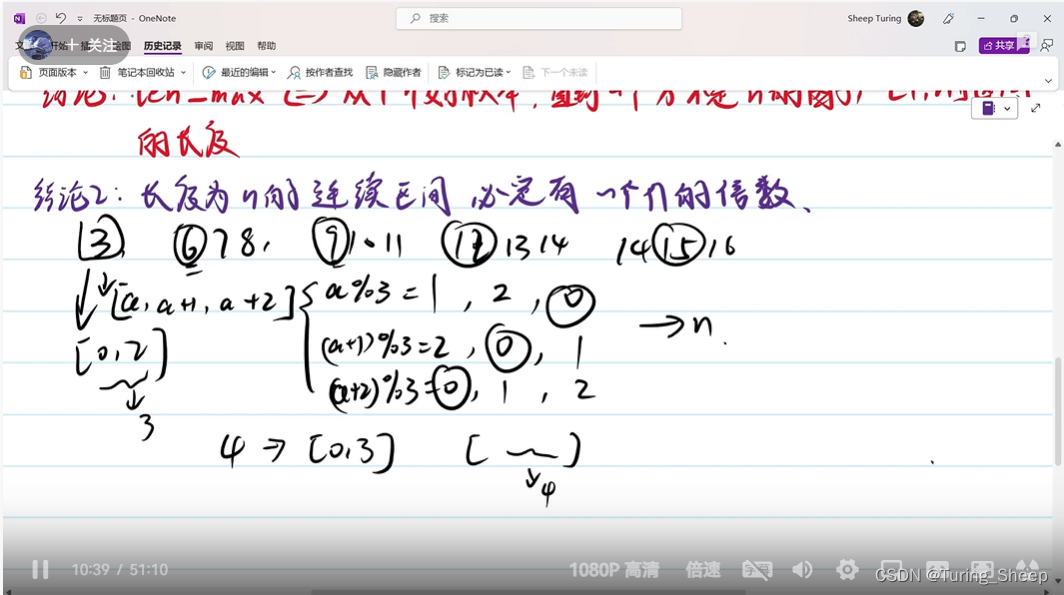 无标题页 - OneNote
搜索
Sheep Turing
关注
绘图 历史记录 审阅 视图 帮助
共享
页面版本 笔记本回收站 最近的编辑 按作者查找 隐藏作者 标记为已读 下一个未读
的长度
结论2: 长度为n的连续区间,必定有一个n的倍数、
[3] 6 7 8, 9 10 11 12 13 14 14 15 16
[a, a+1, a+2] { a%3 = 1, 2, 0
→ n
[0,2] (a+1)%3=2, 0, 1
(a+2)%3=0, 1, 2
3
4 → [0,3] [ ]
4
10:39 / 51:10 1080P 高清 倍速 字幕
CSDN @Turing_Sheep